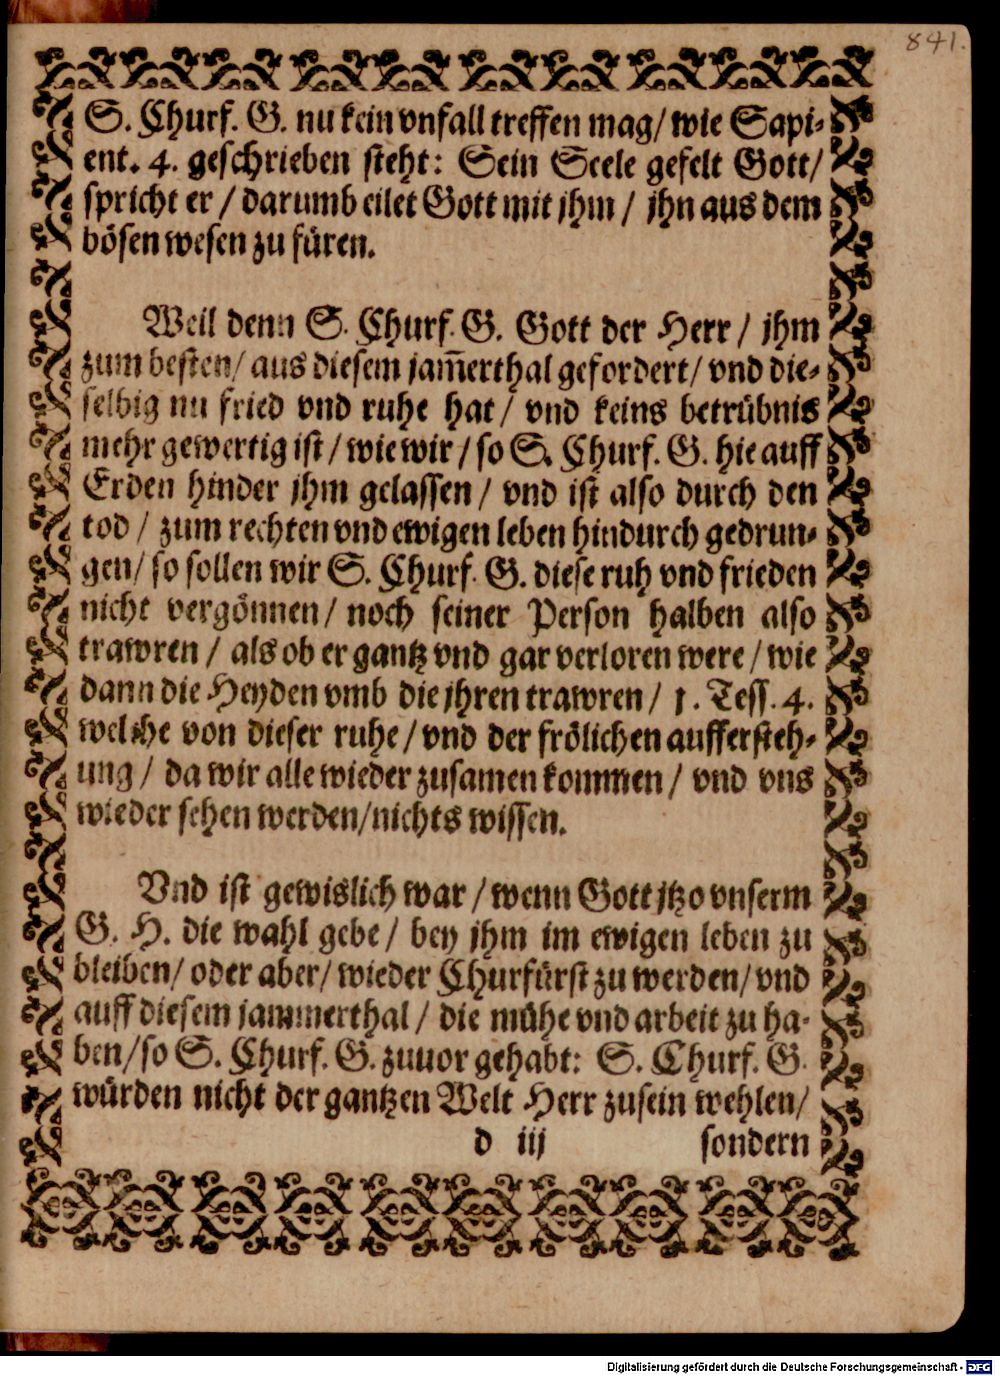 841.
S. Churf. G. nu kein vnfall treffen mag/ wie Sapi-
ent. 4. geschrieben steht: Sein Seele gefelt Gott/
spricht er / darumb eilet Gott mit jhm / jhn aus dem
bösen wesen zu füren.
Weil denn S. Churf. G. Gott der Herr / jhm
zum besten/ aus diesem jam̄erthal gefordert/ vnd die-
selbig nu fried vnd ruhe hat / vnd keins betrübnis
mehr gewertig ist / wie wir / so S. Churf. G. hie auff
Erden hinder jhm gelassen / vnd ist also durch den
tod / zum rechten vnd ewigen leben hindurch gedrun-
gen/ so sollen wir S. Churf. G. diese ruh vnd frieden
nicht vergönnen / noch seiner Person halben also
trawren / als ob er gantz vnd gar verloren were / wie
dann die Heyden vmb die jhren trawren / 1. Tess. 4.
welche von dieser ruhe / vnd der frölichen auffersteh-
ung / da wir alle wieder zusamen kommen / vnd vns
wieder sehen werden/nichts wissen.
Vnd ist gewislich war / wenn Gott jtzo vnserm
G. H. die wahl gebe / bey jhm im ewigen leben zu
bleiben/ oder aber/ wieder Churfürst zu werden/ vnd
auff diesem jammerthal / die mühe vnd arbeit zu ha-
ben/so S. Churf. G. zuuor gehabt: S. Churf. G.
würden nicht der gantzen Welt Herr zusein wehlen/
d iij sondern
Digitalisierung gefördert durch die Deutsche Forschungsgemeinschaft - DFG